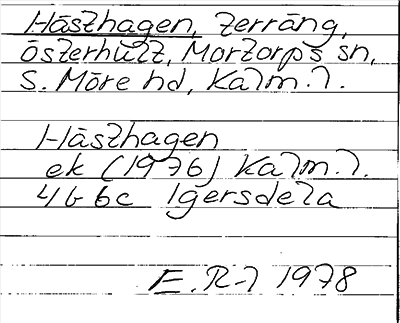 Hästhagen, terräng,
Österhult, Mortorps sn,
S. Möre hd, Kalm.l.
Hästhagen
ek (1976) Kalm.l.
4G 6c Igersdela
E.R-l 1978